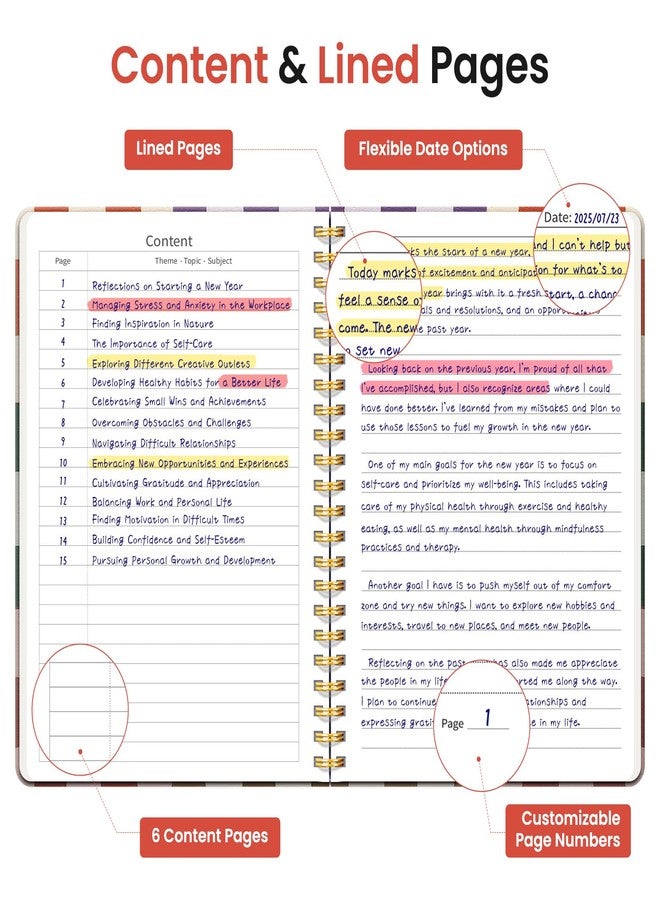 Content & Lined Pages
Lined Pages
Flexible Date Options
Content
Page Theme - Topic - Subject
1 Reflections on Starting a New Year
2 Managing Stress and Anxiety in the Workplace
3 Finding Inspiration in Nature
4 The Importance of Self-Care
5 Exploring Different Creative Outlets
6 Developing Healthy Habits for a Better Life
7 Celebrating Small Wins and Achievements
8 Overcoming Obstacles and Challenges
9 Navigating Difficult Relationships
10 Embracing New Opportunities and Experiences
11 Cultivating Gratitude and Appreciation
12 Balancing Work and Personal Life
13 Finding Motivation in Difficult Times
14 Building Confidence and Self-Esteem
15 Pursuing Personal Growth and Development
Date: 2025/07/23
and I can't help but
on for what's to
start, a chanc
the start of a new year,
Today marks
of excitement and anticipat
feel a sense o
year brings with it a fresh
als and resolutions, and an
come. The new
e past year.
o set new
Looking back on the previous year, I'm proud of all that
I've accomplished, but I also recognize areas where I could
have done better. I've learned from my mistakes and plan to
use those lessons to fuel my growth in the new year.
One of my main goals for the new year is to focus on
self-care and prioritize my well-being. This includes taking
care of my physical health through exercise and healthy
eating, as well as my mental health through mindfulness
practices and therapy.
Another goal I have is to push myself out of my comfort
zone and try new things. I want to explore new hobbies and
interests, travel to new places, and meet new people.
Reflecting on the past has also made me appreciate
the people in my life rted me along the way.
I plan to continue tionships and
expressing grati e in my life.
Page 1
6 Content Pages
Customizable
Page Numbers